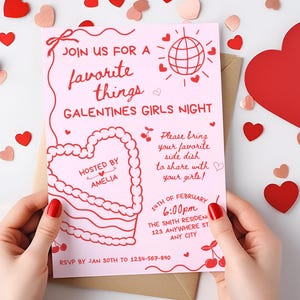 JOIN US FOR A
favorite
things
GALENTINES GIRLS NIGHT
HOSTED BY
AMELIA
Please bring
your favorite
side dish
to share with
your girls!
OF FEBRUARY
6:00pm
THE SMITH RESIDENCE
123 ANYWHERE ST.
ANY CITY
RSVP BY JAN 30TH TO 1234-567-890